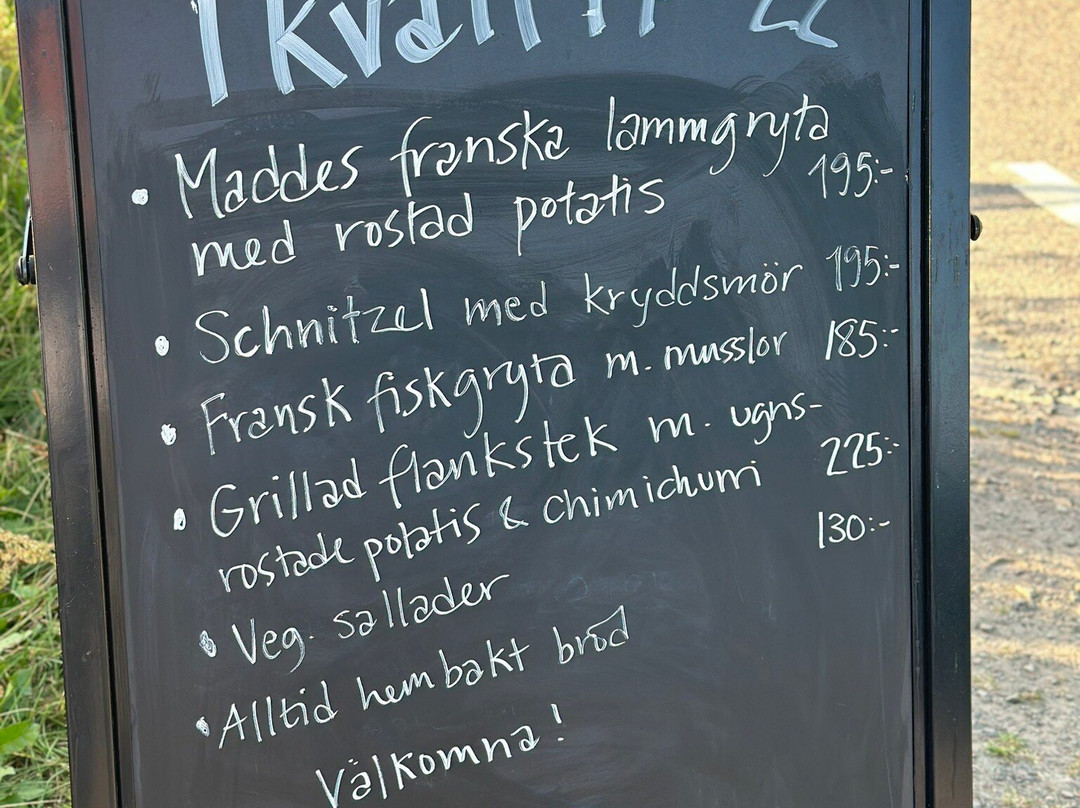 • Maddes franska lammgryta
med rostad potatis 195:-
• Schnitzel med kryddsmör 195:-
• Fransk fiskgryta m. musslor 185:-
• Grillad flankstek m. ugns-
rostade potatis & chimichurri 225:-
• Veg. sallader 130:-
• Alltid hembakt bröd
Välkomna!